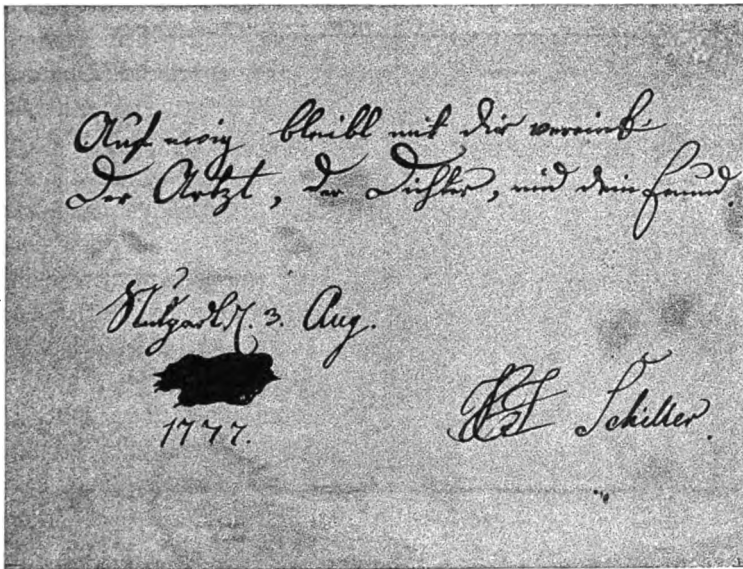 Auf ewig bleibt mit dir vereint
Der Artzt, der Dichter, und dein Freund.
Stutgardt d. 3. Aug.
1777.
Schiller.